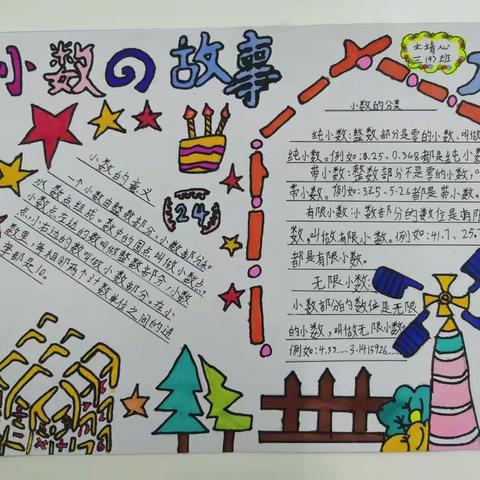 小数の故事
文婧心
三(4)班
小数的意义
一个小数由整数部分、小数部分和
小数点组成。数中的圆点叫做小数点,
小数点左边的数叫做整数部分,小数
点右边的数叫做小数部分。在小
数里,每相邻两个计数单位之间的进
率都是10。
24
小数的分类
纯小数:整数部分是零的小数,叫做
纯小数。例如:0.25、0.368都是纯小数
带小数:整数部分不是零的小数,
带小数。例如:3.25、5.26都是带小数。
有限小数:小数部分的数位是有限
数,叫做有限小数。例如:41.7、25.
都是有限小数。
无限小数:
小数部分的数位是无限
的小数,叫做无限小数。
例如:4.33……3.1415926……